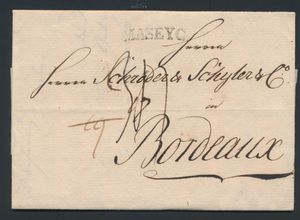 MASEYC
Herren
Herren Schröder & Schÿler & Co
in
Bordeaux